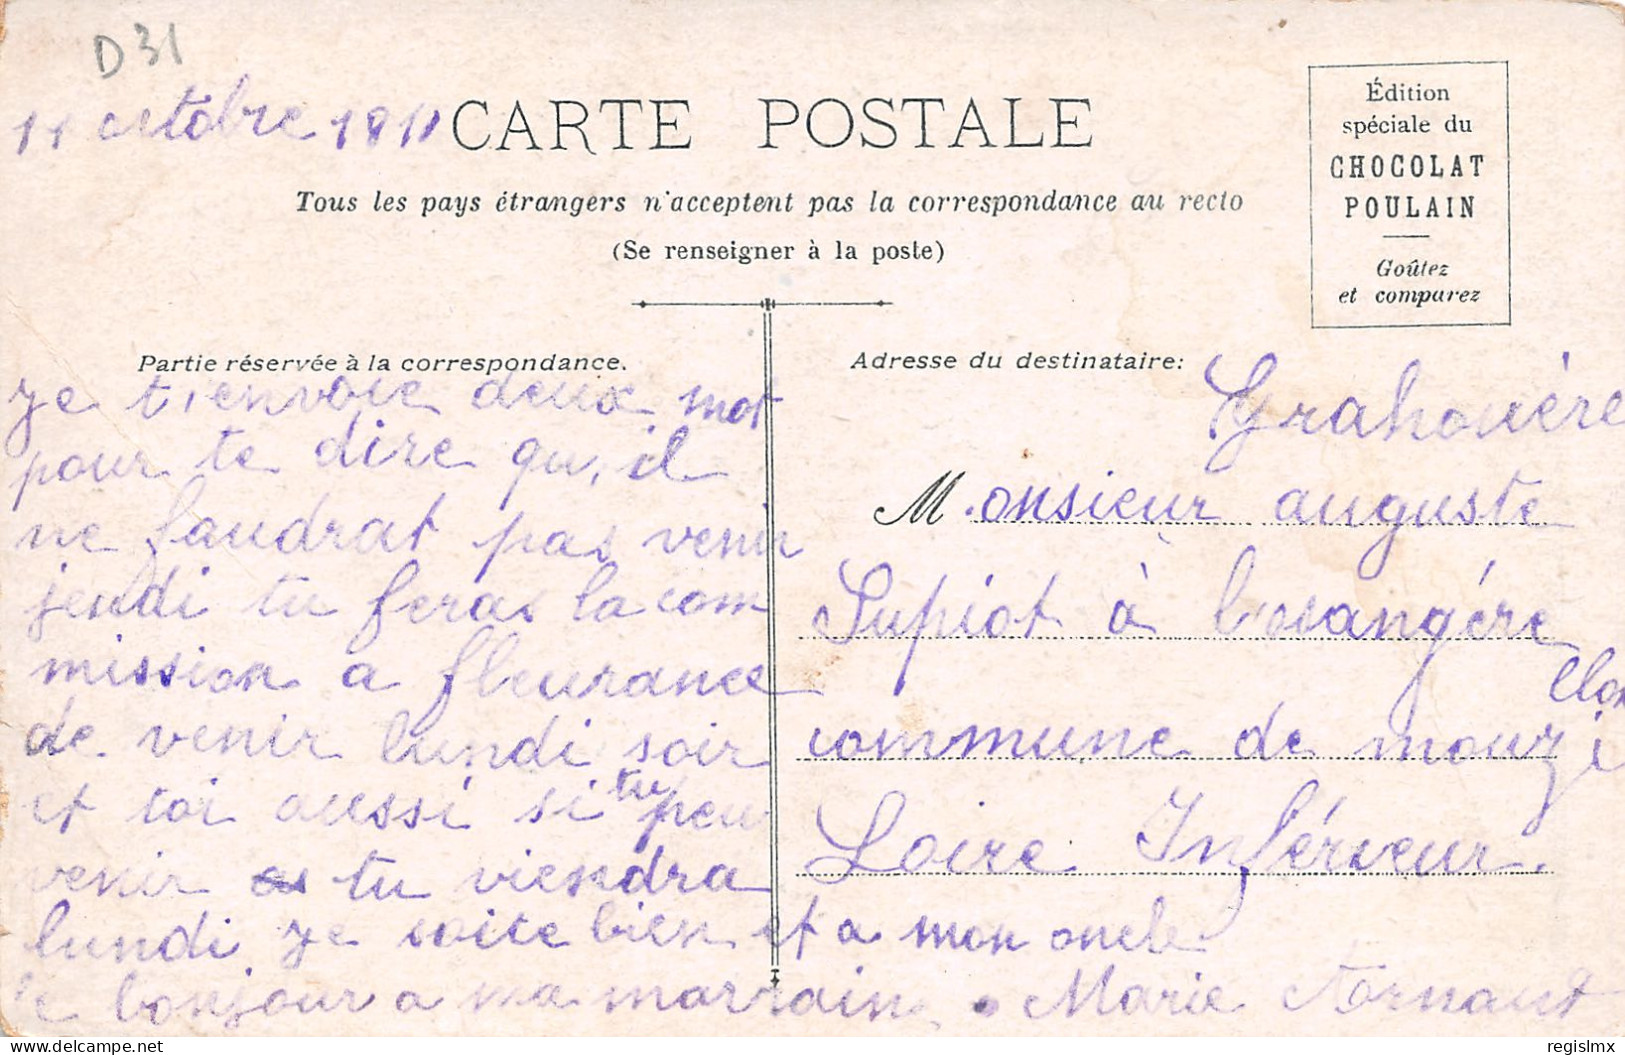 D 31
11 octobre 1911
CARTE POSTALE
Édition
spéciale du
CHOCOLAT
POULAIN
Goûtez
et comparez
Tous les pays étrangers n'acceptent pas la correspondance au recto
(Se renseigner à la poste)
Partie réservée à la correspondance.
je t'envoie deux mot
pour te dire qu'il
ne faudrat pas venir
jendi tu feras la com
mission a fleurance
de venir lundi soir
et toi aussi si tu peu
venir tu viendra
lundi je soite bien et a mon oncle
le bonjour a ma marrain. Marie Arnaut
Adresse du destinataire:
Grahouère
Monsieur auguste
Supiot à
commune de mouzi
llon
Loire Inférieur.
www.delcampe.net
regislmx